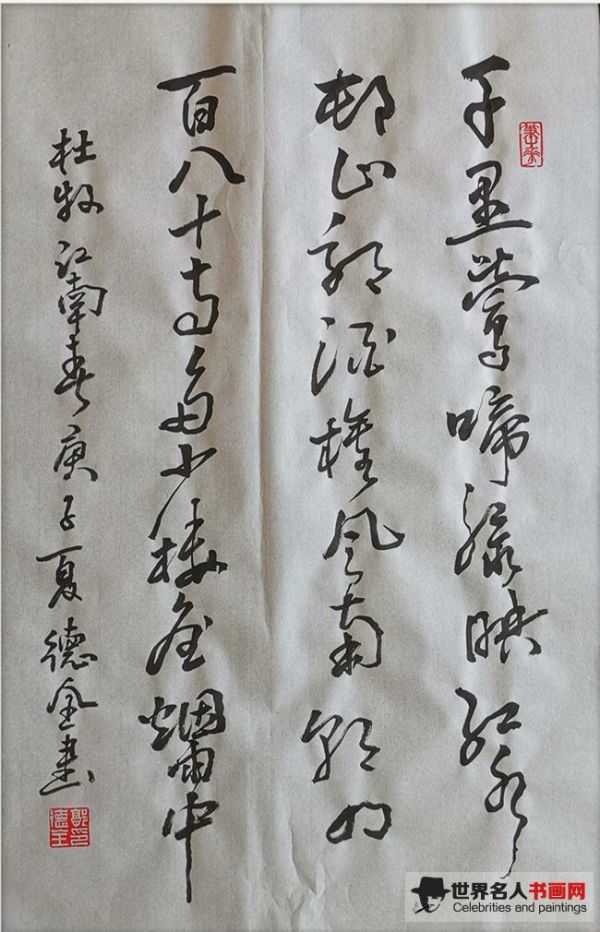 千里鶯啼绿映红水
邨山郭酒旗风南朝四
百八十寺多少楼台烟雨中
杜牧江南春庚子夏德全書
世界名人书画网
Celebrities and paintings